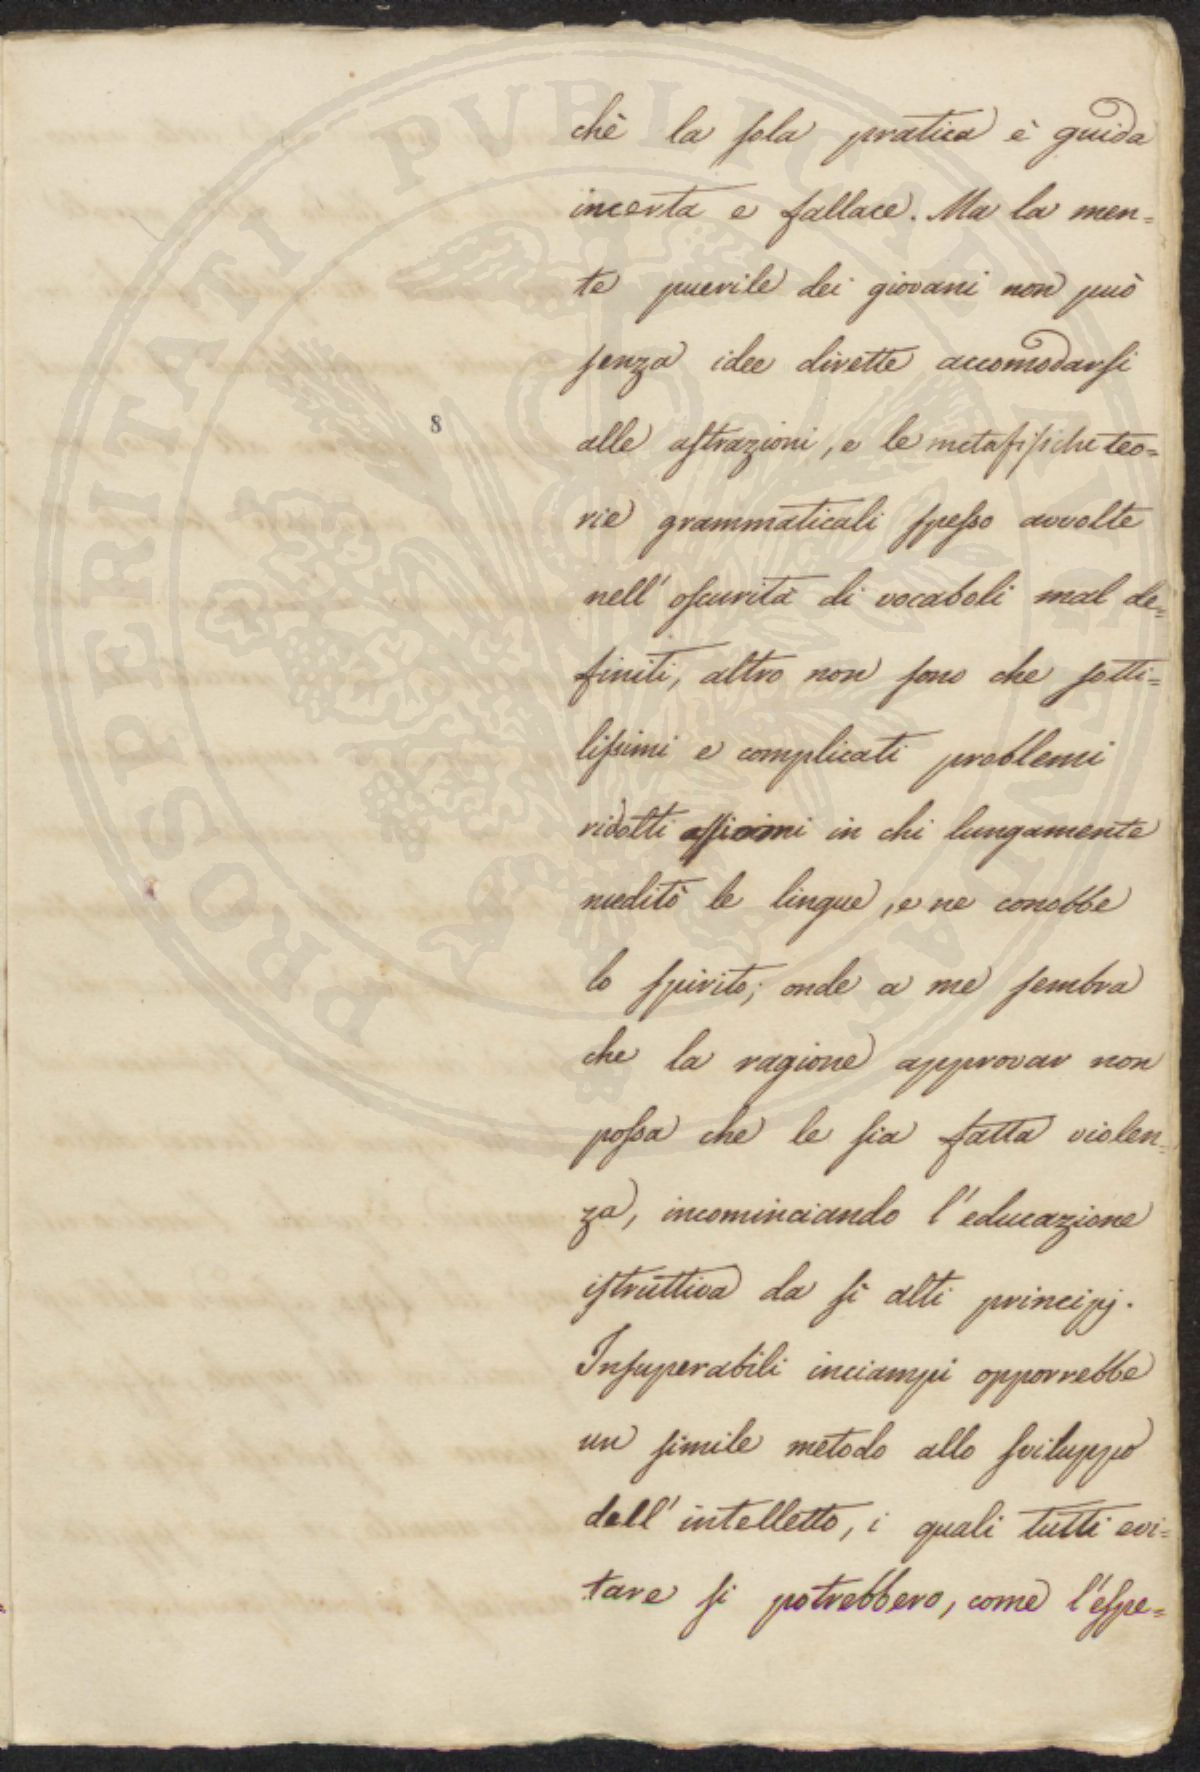 PROSPERITATI PUBLICAE AUGENDAE
8
chè la sola pratica è guida
incerta e fallace. Ma la men=
te puerile dei giovani non può
senza idee dirette accomodarsi
alle astrazioni, e le metafisiche teo=
rie grammaticali spesso avvolte
nell' oscurità di vocaboli mal de=
finiti, altro non sono che sotti=
lissimi e complicati problemi
ridotti assiomi in chi lungamente
meditò le lingue, e ne conobbe
lo spirito; onde a me sembra
che la ragione approvar non
possa che le sia fatta violen=
za, incominciando l'educazione
istruttiva da sì alti principj.
Insuperabili inciampi opporrebbe
un simile metodo allo sviluppo
dell' intelletto, i quali tutti evi=
tare si potrebbero, come l'espe=